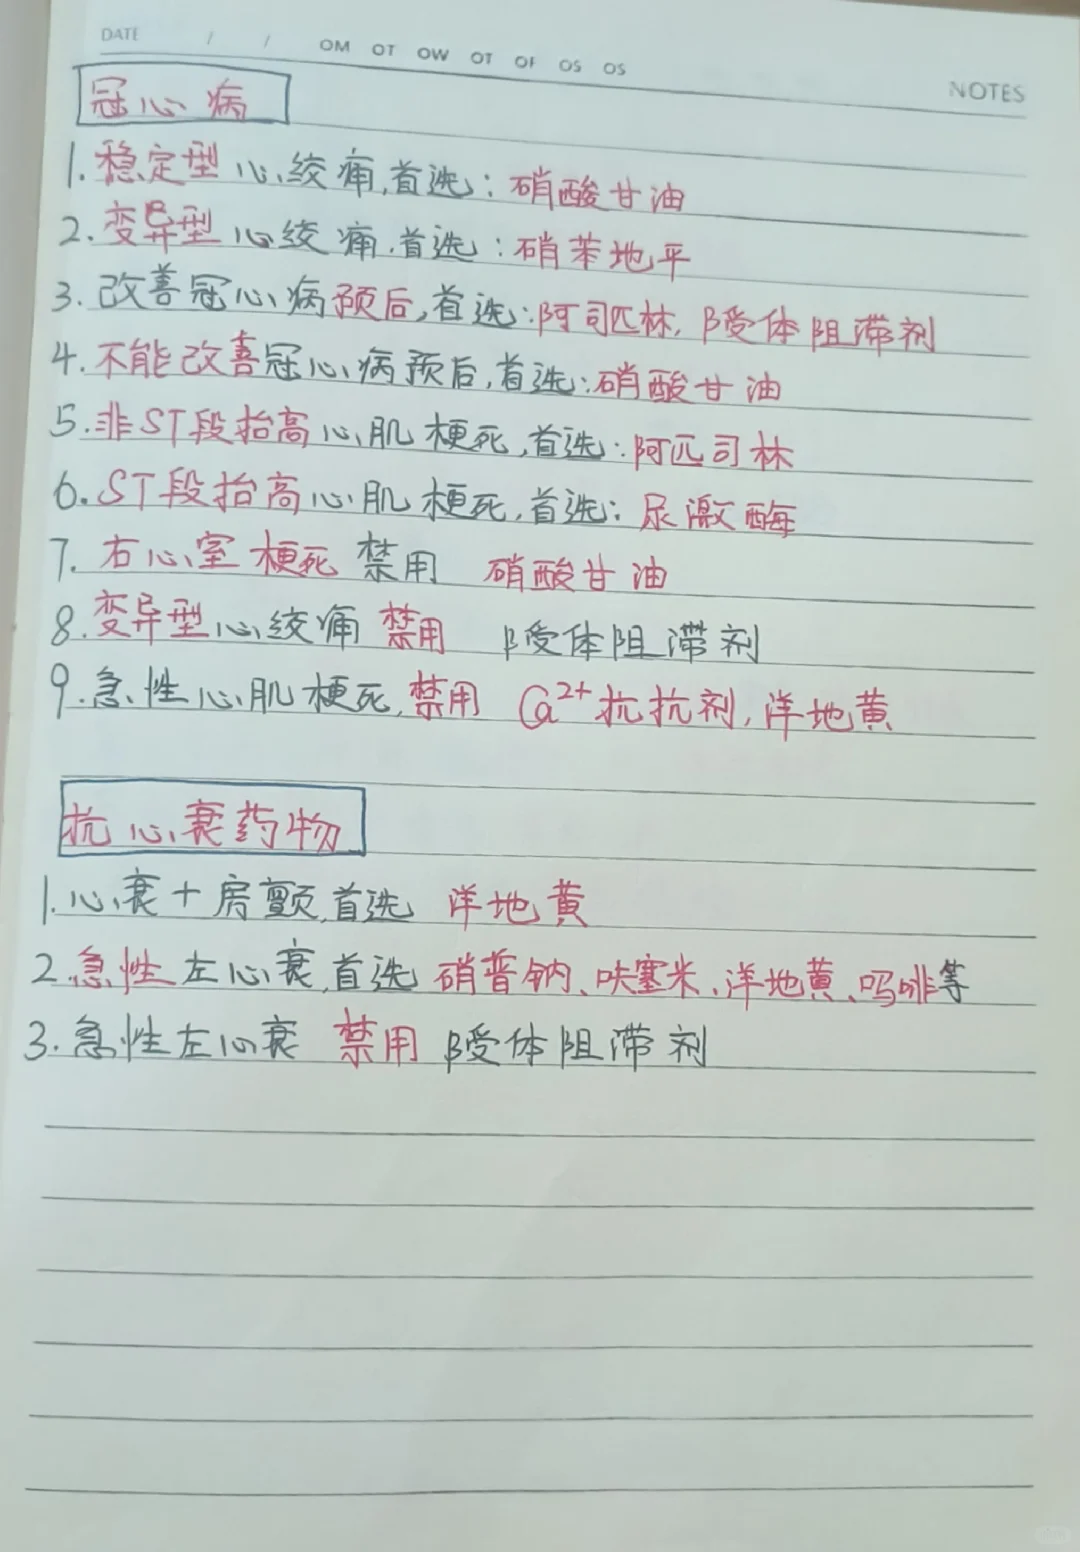 DATE / / OM OT OW OT OF OS OS
NOTES
冠心病
1.稳定型心绞痛,首选:硝酸甘油
2.变异型心绞痛.首选:硝苯地平
3.改善冠心病预后,首选:阿司匹林,β受体阻滞剂
4.不能改善冠心病预后,首选:硝酸甘油
5.非ST段抬高心肌梗死,首选:阿匹司林
6.ST段抬高心肌梗死,首选:尿激酶
7.右心室梗死禁用 硝酸甘油
8.变异型心绞痛禁用 β受体阻滞剂
9.急性心肌梗死,禁用 Ca²⁺抗抗剂,洋地黄
抗心衰药物
1.心衰+房颤,首选 洋地黄
2.急性左心衰,首选 硝普钠、呋塞米、洋地黄、吗啡等
3.急性左心衰 禁用 β受体阻滞剂